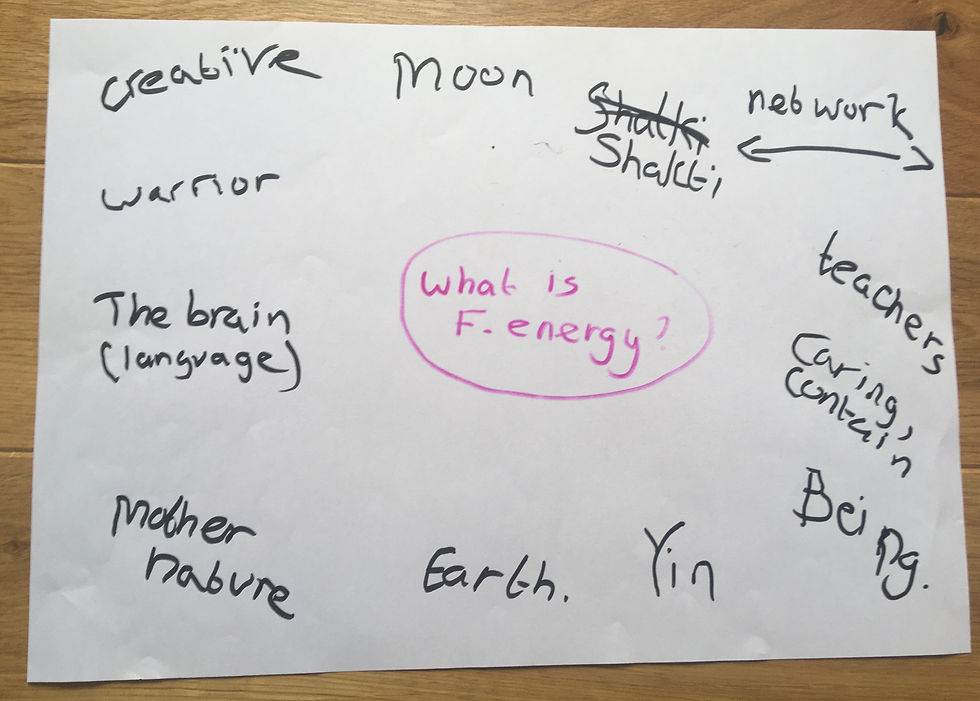 creative
Moon
Shakti
Shakti
network
warrior
What is
F. energy?
The brain
(language)
teachers
Caring,
contain
Being.
Mother
nature
Earth.
Yin